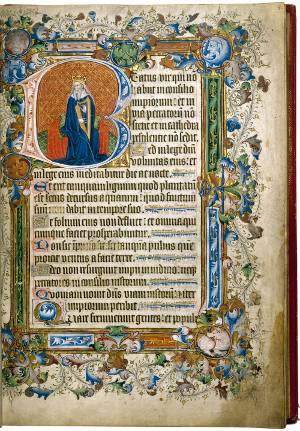 Beatus vir qui no
abiit in consilio
impiorum: et in
via peccatorum no
stetit et in cathedra
pestilencie non sedit.
Sed in lege dni
voluntas eius: et
in lege eius meditabitur die ac nocte.
Et erit tanquam lignum quod plantatu
est secus decursus aquarum: quod fructum
suum dabit in tempore suo
Et folium eius non defluet: et omnia que
cunque faciet prosperabuntur.
Non sic impii non sic: set tanquam pulvis que
ventus a facie terre.
Ideo non resurgunt impii in iudicio: neque
peccatores in consilio iustorum
Quoniam novit dns viam iustorum: et iter
impiorum peribit.
Quare fremuerunt gentes: et populi